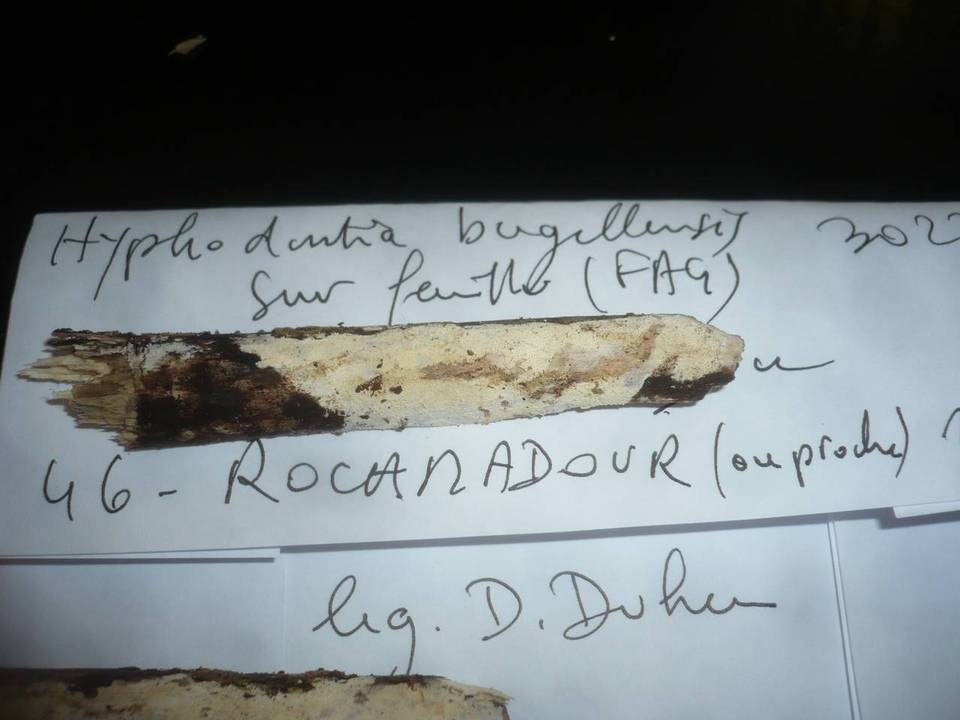 Hyphodontia bugellensis 302
sur feuillu (FAG)
46 - ROCAMADOUR (ou proche)
leg. D. Duhem